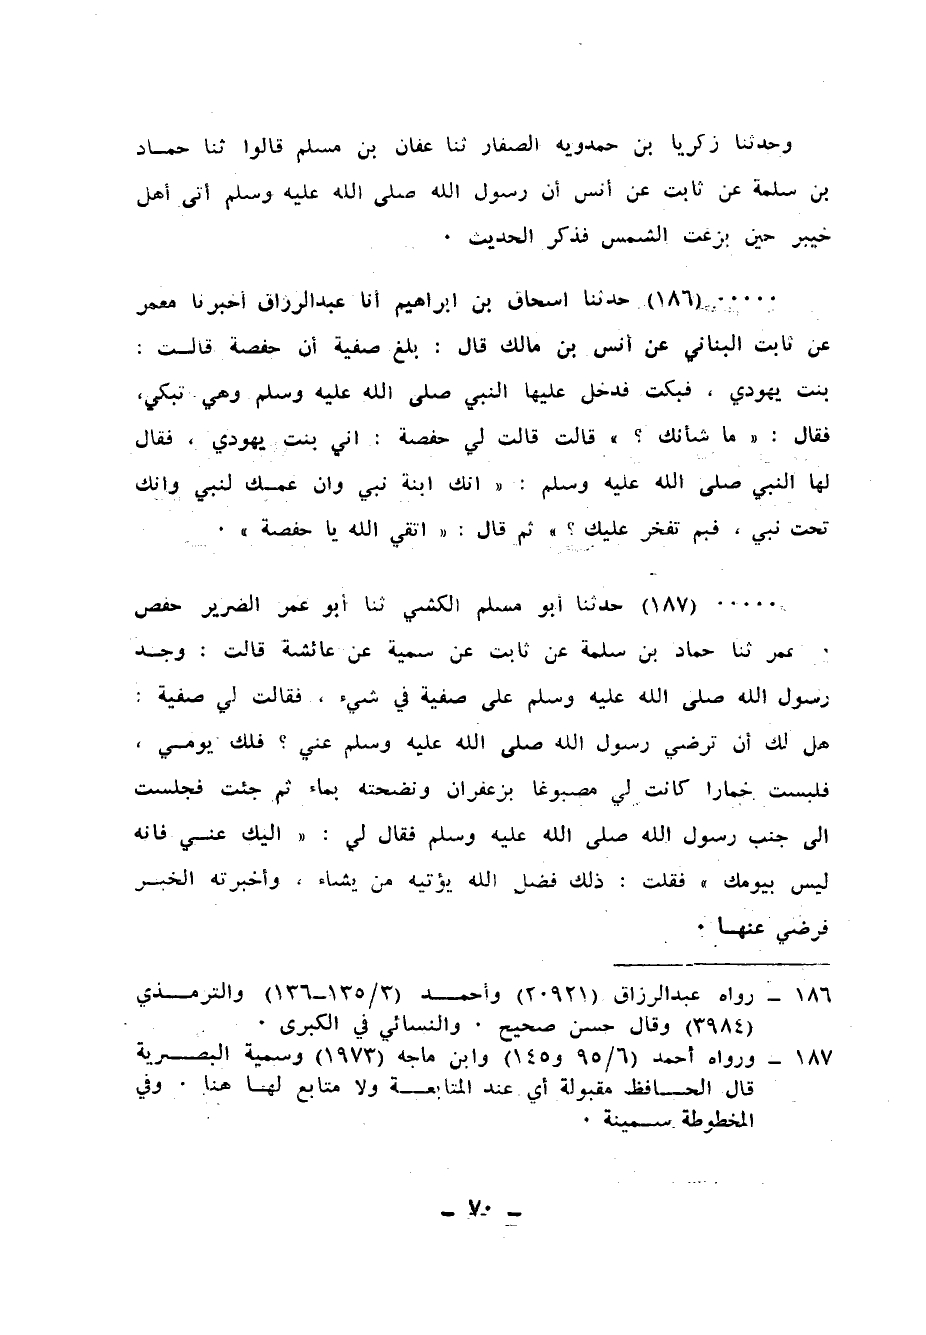 وحدثنا زكريا بن حمدويه الصفار ثنا عفان بن مسلم قالوا ثنا حمــاد
بن سلمة عن ثابت عن أنس أن رسول الله صلى الله عليه وسلم أتى أهل
خيبر حين بزغت الشمس فذكر الحديث ٠
٠٠٠٠٠ (١٨٦) حدثنا اسحاق بن ابراهيم أنا عبدالرزاق أخبرنا معمر
عن ثابت البناني عن أنس بن مالك قال : بلغ صفية أن حفصة قالــت :
بنت يهودي ، فبكت فدخل عليها النبي صلى الله عليه وسلم وهي تبكي،
فقال : « ما شأنك ؟ » قالت قالت لي حفصة : اني بنت يهودي ، فقال
لها النبي صلى الله عليه وسلم : « انك ابنة نبي وان عمــك لنبي وانك
تحت نبي ، فبم تفخر عليك ؟ » ثم قال : « اتقي الله يا حفصة » ٠
٠٠٠٠٠ (١٨٧) حدثنا أبو مسلم الكشي ثنا أبو عمر الضرير حفص
٠ عمر ثنا حماد بن سلمة عن ثابت عن سمية عن عائشة قالت : وجــد
رسول الله صلى الله عليه وسلم على صفية في شيء ، فقالت لي صفية :
هل لك أن ترضي رسول الله صلى الله عليه وسلم عني ؟ فلك يومــي ،
فلبست خمارا كانت لي مصبوغا بزعفران ونضحته بماء ثم جئت فجلست
الى جنب رسول الله صلى الله عليه وسلم فقال لي : « اليك عنــي فانه
ليس بيومك » فقلت : ذلك فضل الله يؤتيه من يشاء ، وأخبرته الخبــر
فرضي عنهــا ٠
١٨٦ ـ رواه عبدالرزاق (٢٠٩٢١) وأحمــد (٣/١٣٥ــ١٣٦) والترمــذي
(٣٩٨٤) وقال حسن صحيح ٠ والنسائي في الكبرى ٠
١٨٧ ـ ورواه أحمد (٦/٩٥ و١٤٥) وابن ماجه (١٩٧٣) وسمية البصــرية
قال الحــافظ مقبولة أي عند المتابعــة ولا متابع لهــا هنا ٠ وفي
المخطوطة ســمينة ٠
ـ ٧٠ ـ